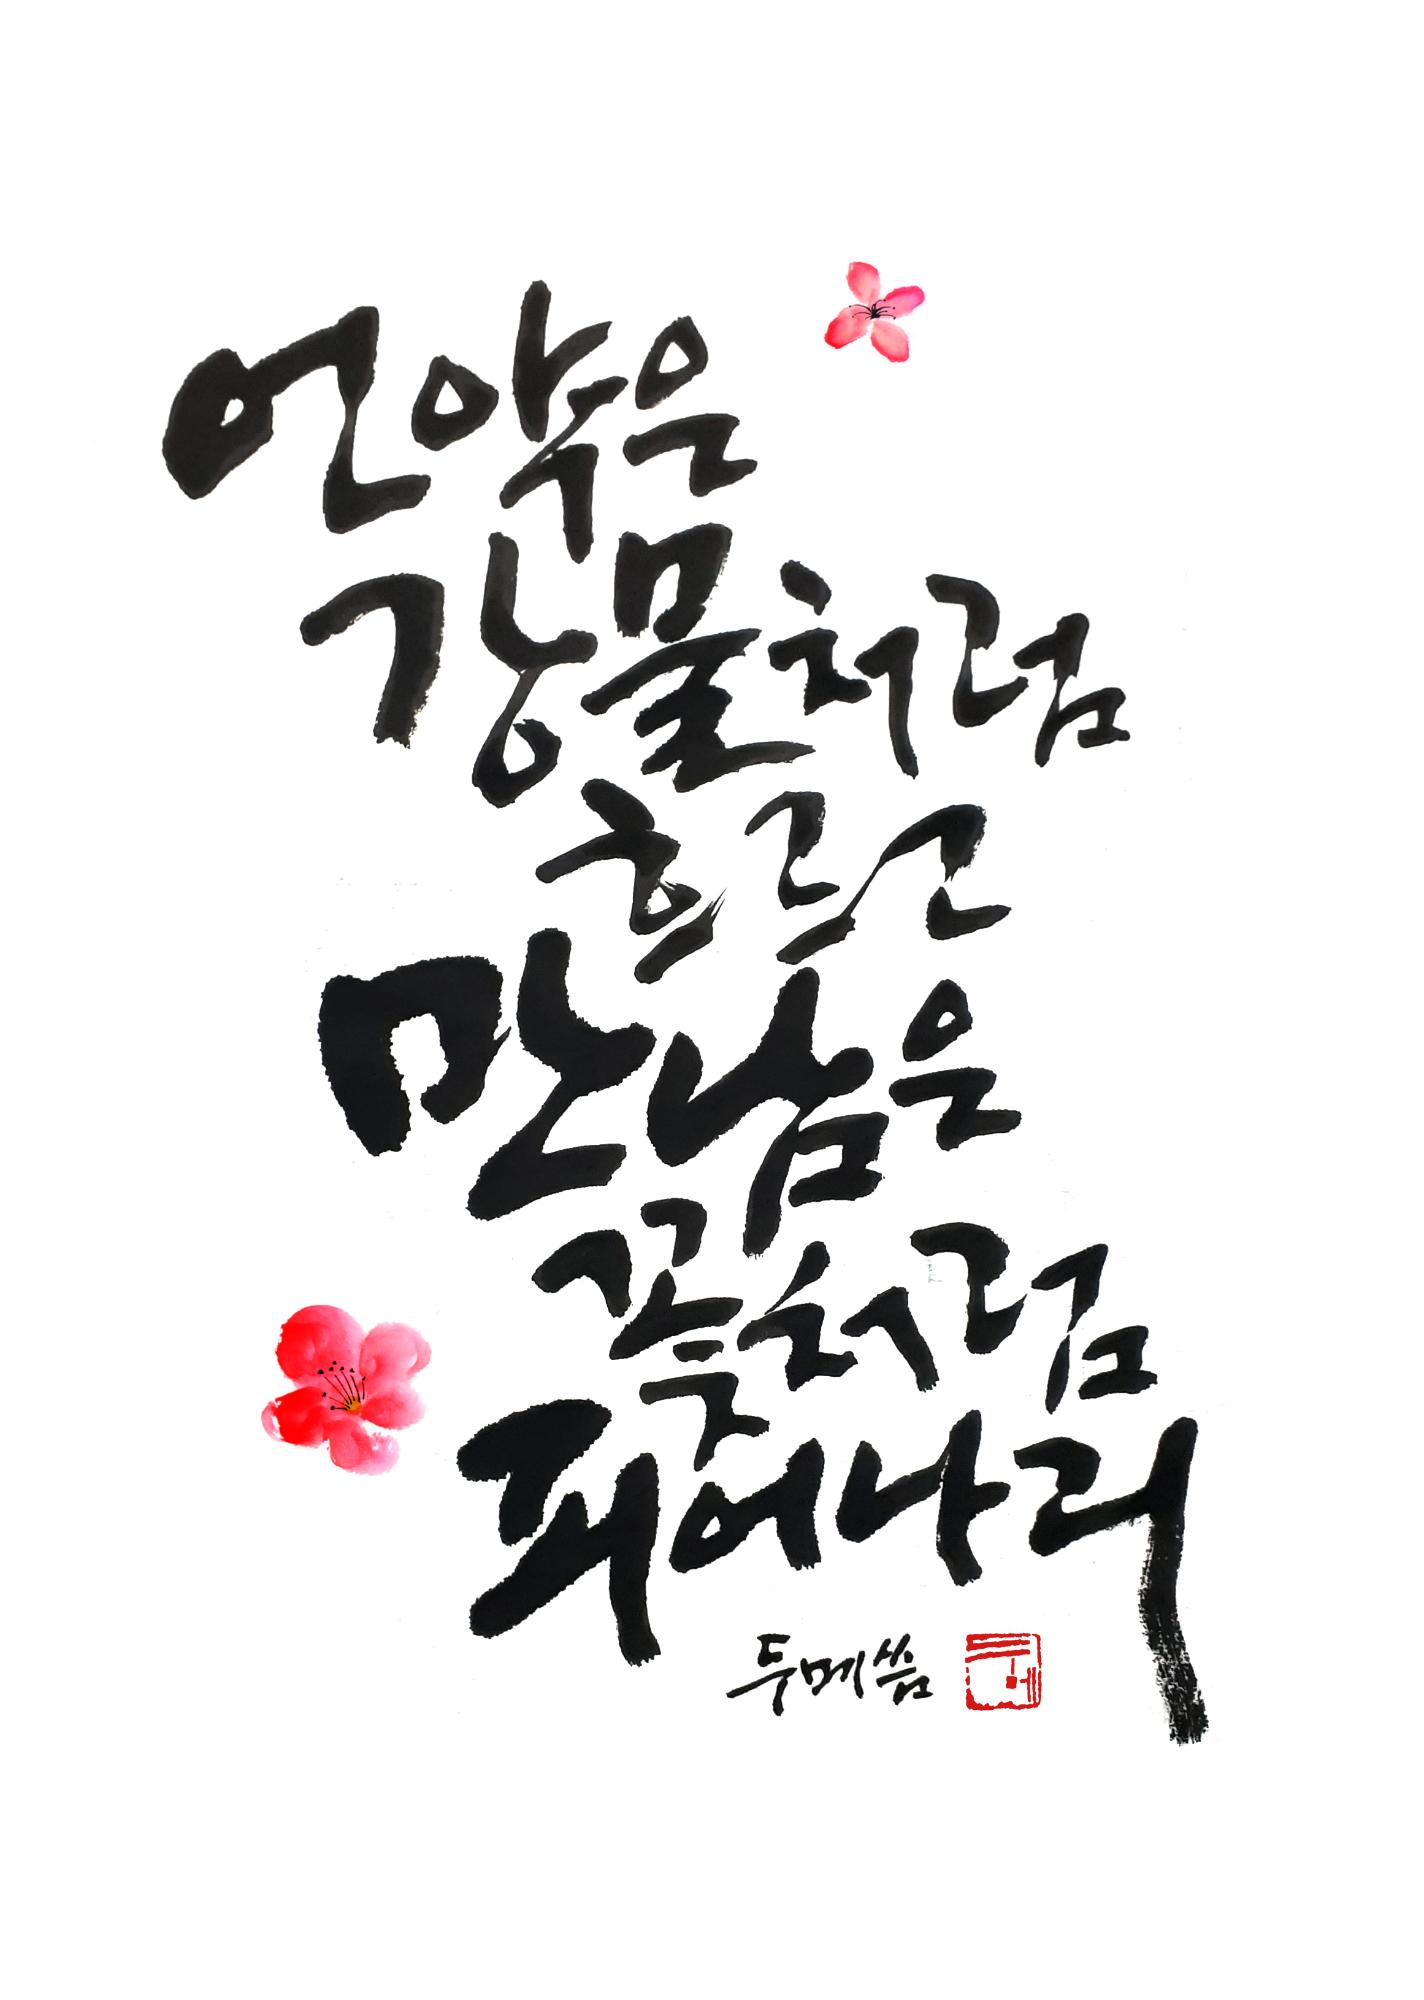 언약은
강물처럼
흐르고
만남은
꽃처럼
피어나리
두메씀